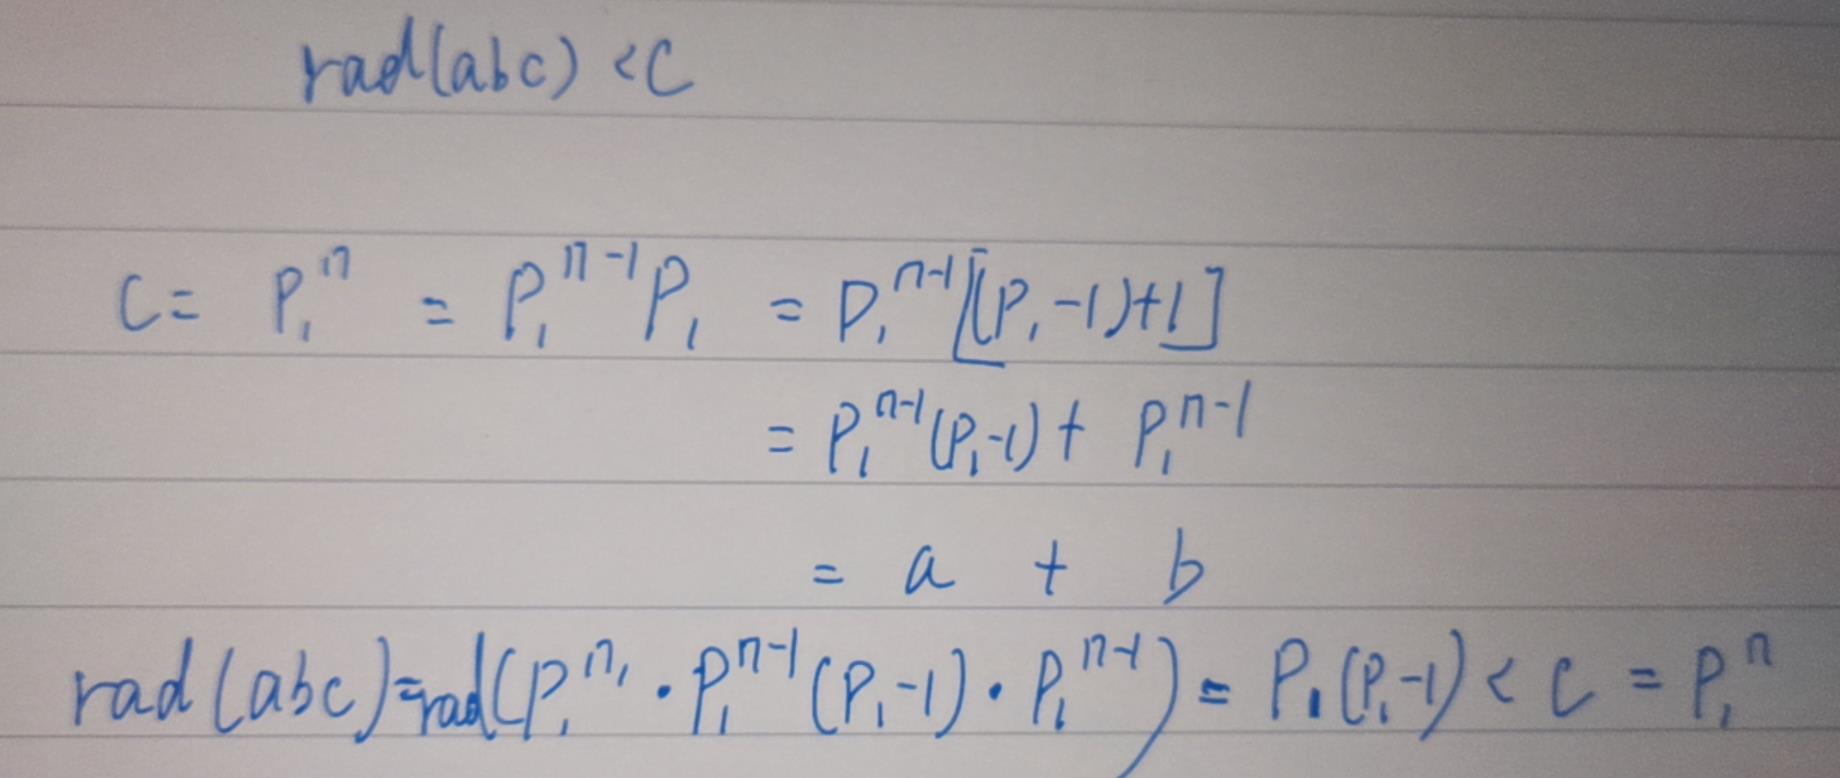 rad(abc) < C
C = P₁ⁿ = P₁ⁿ⁻¹P₁ = P₁ⁿ⁻¹[(P₁-1)+1]
= P₁ⁿ⁻¹(P₁-1) + P₁ⁿ⁻¹
= a + b
rad(abc) = rad(P₁ⁿ · P₁ⁿ⁻¹(P₁-1) · P₁ⁿ⁻¹) = P₁(P₁-1) < C = P₁ⁿ